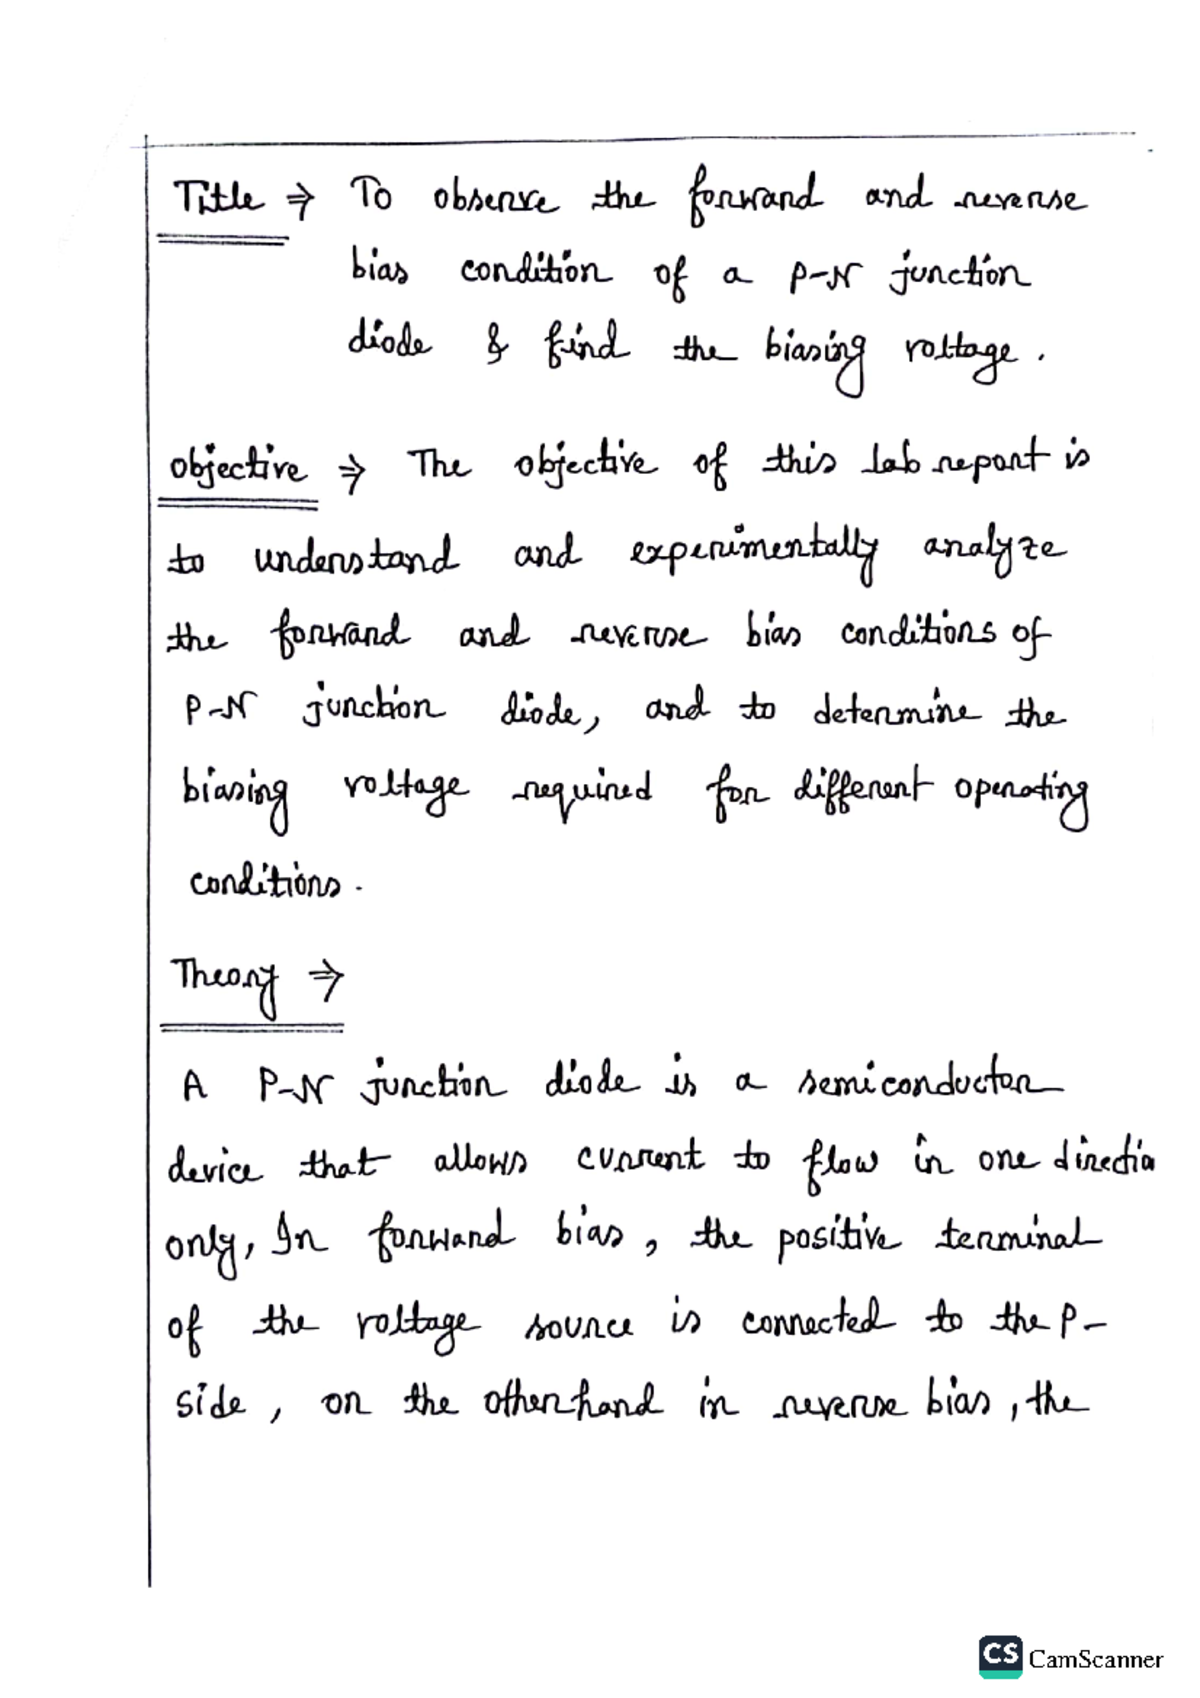 Title ⇒ To observe the forward and reverse
bias condition of a P-N junction
diode & find the biasing voltage.
objective ⇒ The objective of this lab report is
to understand and experimentally analyze
the forward and reverse bias conditions of
P-N junction diode, and to determine the
biasing voltage required for different operating
conditions.
Theory ⇒
A P-N junction diode is a semiconductor
device that allows current to flow in one directio
only, In forward bias, the positive terminal
of the voltage source is connected to the P-
side, on the otherhand in reverse bias, the
CS CamScanner